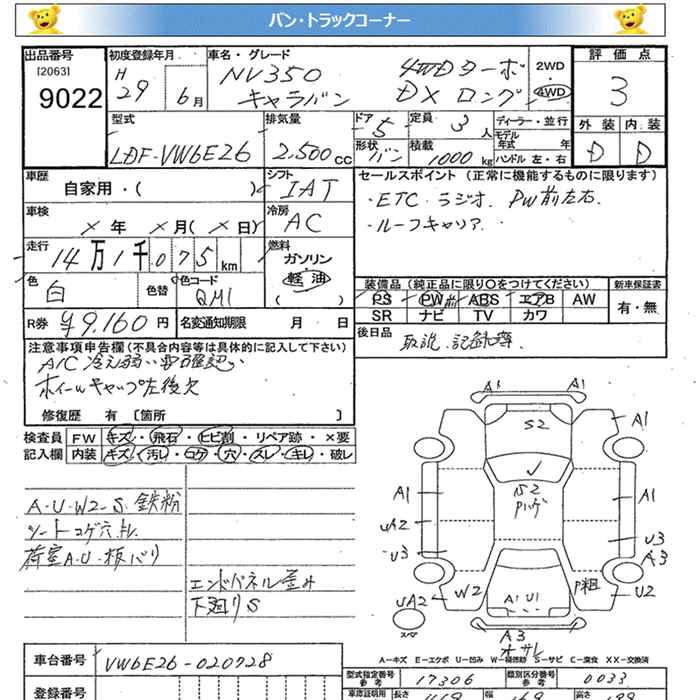 バン・トラックコーナー
出品番号 初度登録年月 車名・グレード 評価点
[2063]
9022
H29 6月
NV350 4WDターボ
キャラバン DX ロング
2WD
・
4WD
3
型式 排気量 ドア 定員 ディーラー・並行 外装 内装
LDF-VW6E26 2,500cc 5 3人
モデル年式 年
形状 バン 積載 1000kg ハンドル 左・右
D D
車歴 シフト セールスポイント(正常に機能するものに限ります)
自家用・( ) IAT
・ETC ラジオ. PW前左右
車検 冷房
×年 ×月(×日) AC
・ルーフキャリア.
走行 燃料
14万1千075km ガソリン
軽油
( )
色 色替 色コード
白 QM1
装備品(純正品に限り○をつけてください) 新車保証書
PS PW前 ABS エアB AW
SR ナビ TV カワ
有・無
R券 ¥9,160円 名変通知期限 月 日
後日品
取説.記録簿
注意事項申告欄(不具合内容等は具体的に記入して下さい)
A/C冷え弱い要確認
ホイールキャップ左後欠
修復歴 有[箇所 ]
検査員 FW キズ・飛石・ヒビ割・リペア跡・×要
記入欄 内装 キズ・汚レ・コゲ・穴・スレ・キレ・破レ
A-U-W2-S 鉄粉
シートコゲ穴
荷室A.U.板バリ
エンドパネル歪み
下廻りS
A1
S2
A1
S2
A1
A1
UA2
U3
U3
A3
W2
P粗
U2
UA2
A1 U1
スペア
A3
A―キズ E―エクボ U―凹み W―補修跡 S―サビ C―腐食 XX―交換済
車台番号 VW6E26-020928
型式指定番号 参考 17306 類別区分番号 参考 0033
登録番号
車庫証明用 長さ 幅 高